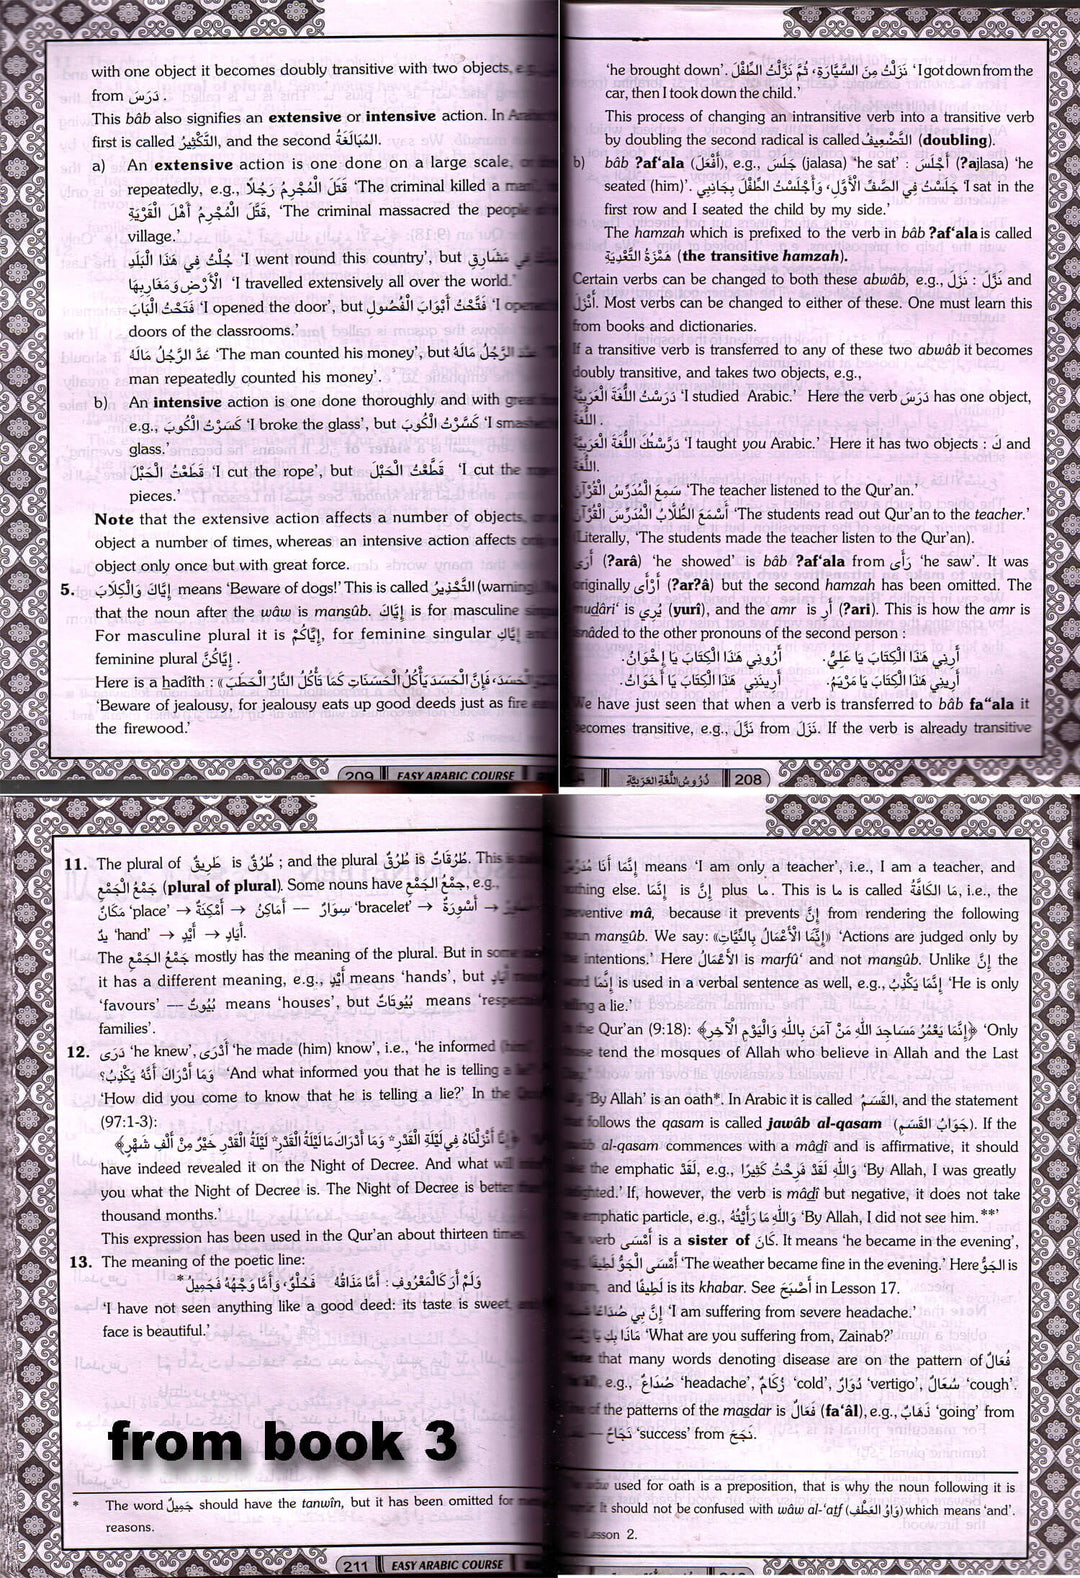 with one object it becomes doubly transitive with two objects, e.g.,
from دَرَسَ .
This bâb also signifies an extensive or intensive action. In
first is called التَّكْثِيرُ, and the second المُبَالَغَةُ.
a) An extensive action is one done on a large scale,
repeatedly, e.g., قَتَلَ الْمُجْرِمُ رَجُلاً 'The criminal killed a man',
قَتَّلَ الْمُجْرِمُ أَهْلَ الْقَرْيَةِ, 'The criminal massacred the people
village.'
جُلْتُ فِي هَذَا الْبَلَدِ 'I went round this country', but فِي مَشَارِقِ
الْأَرْضِ وَمَغَارِبِهَا 'I travelled extensively all over the world.'
فَتَحْتُ الْبَابَ 'I opened the door', but فَتَّحْتُ أَبْوَابَ الْفُصُولِ 'I opened
doors of the classrooms.'
عَدَّ الرَّجُلُ مَالَهُ 'The man counted his money', but الرَّجُلُ مَالَهُ
man repeatedly counted his money'.
b) An intensive action is one done thoroughly and with great
e.g., كَسَرْتُ الْكُوبَ 'I broke the glass', but كَسَّرْتُ الْكُوبَ 'I smashed
glass.'
قَطَعْتُ الْحَبْلَ 'I cut the rope', but قَطَّعْتُ الْحَبْلَ 'I cut the
pieces.'
Note that the extensive action affects a number of objects,
object a number of times, whereas an intensive action affects
object only once but with great force.
5. إِيَّاكَ وَالْكِلَابَ means 'Beware of dogs!' This is called التَّحْذِيرُ (warning).
that the noun after the wâw is manṣûb. إِيَّاكَ is for masculine
For masculine plural it is إِيَّاكُمْ, for feminine singular إِيَّاكِ and
feminine plural إِيَّاكُنَّ .
Here is a hadîth : الْحَسَدَ، فَإِنَّ الْحَسَدَ يَأْكُلُ الْحَسَنَاتِ كَمَا تَأْكُلُ النَّارُ الْحَطَبَ»
'Beware of jealousy, for jealousy eats up good deeds just as fire
the firewood.'
209 EASY ARABIC COURSE
'he brought down'. نَزَلْتُ مِنَ السَّيَّارَةِ، ثُمَّ نَزَّلْتُ الطِّفْلَ 'I got down from the
car, then I took down the child.'
This process of changing an intransitive verb into a transitive verb
by doubling the second radical is called التَّضْعِيفُ (doubling).
b) bâb ʔaf'ala (أَفْعَلَ), e.g., جَلَسَ (jalasa) 'he sat' : أَجْلَسَ (ʔajlasa) 'he
seated (him)'. جَلَسْتُ فِي الصَّفِّ الْأَوَّلِ، وَأَجْلَسْتُ الطِّفْلَ بِجَانِبِي 'I sat in the
first row and I seated the child by my side.'
The hamzah which is prefixed to the verb in bâb ʔaf'ala is called
هَمْزَةُ التَّعْدِيَةِ (the transitive hamzah).
Certain verbs can be changed to both these abwâb, e.g., نَزَلَ : نَزَّلَ and
أَنْزَلَ. Most verbs can be changed to either of these. One must learn this
from books and dictionaries.
If a transitive verb is transferred to any of these two abwâb it becomes
doubly transitive, and takes two objects, e.g.,
دَرَسْتُ اللُّغَةَ الْعَرَبِيَّةَ 'I studied Arabic.' Here the verb دَرَسَ has one object,
اللُّغَةَ .
دَرَّسْتُكَ اللُّغَةَ الْعَرَبِيَّةَ 'I taught you Arabic.' Here it has two objects : كَ and
اللُّغَةَ.
سَمِعَ الْمُدَرِّسُ الْقُرْآنَ 'The teacher listened to the Qur'an.'
أَسْمَعَ الطُّلَّابُ الْمُدَرِّسَ الْقُرْآنَ 'The students read out Qur'an to the teacher.'
(Literally, 'The students made the teacher listen to the Qur'an).
أَرَى (ʔarâ) 'he showed' is bâb ʔaf'ala from رَأَى 'he saw'. It was
originally أَرْأَى (ʔarʔâ) but the second hamzah has been omitted. The
mudâri' is يُرِي (yurî), and the amr is أَرِ (ʔari). This is how the amr is
isnâded to the other pronouns of the second person :
أَرِنِي هَذَا الْكِتَابَ يَا عَلِيُّ. أَرُونِي هَذَا الْكِتَابَ يَا إِخْوَانُ.
أَرِينِي هَذَا الْكِتَابَ يَا مَرْيَمُ. أَرِينَنِي هَذَا الْكِتَابَ يَا أَخَوَاتُ.
We have just seen that when a verb is transferred to bâb fa''ala it
becomes transitive, e.g., نَزَّلَ from نَزَلَ. If the verb is already transitive
دُرُوسُ اللُّغَةِ العَرَبِيَّةِ 208
11. The plural of طَرِيقٌ is طُرُقٌ ; and the plural طُرُقٌ is طُرُقَاتٌ. This is
جَمْعُ الْجَمْعِ (plural of plural). Some nouns have جَمْعُ الجَمْعِ, e.g.,
مَكَانٌ 'place' → أَمْكِنَةٌ → أَمَاكِنُ — سِوَارٌ 'bracelet' → أَسْوِرَةٌ →
يَدٌ 'hand' → أَيْدٍ → أَيَادٍ.
The جَمْعُ الْجَمْعِ mostly has the meaning of the plural. But in some
it has a different meaning, e.g., أَيْدٍ means 'hands', but أَيَادٍ
'favours' — بُيُوتٌ means 'houses', but بُيُوتَاتٌ means 'respectable
families'.
12. دَرَى 'he knew', أَدْرَى 'he made (him) know', i.e., 'he informed (him)'
وَمَا أَدْرَاكَ أَنَّهُ يَكْذِبُ؟ 'And what informed you that he is telling a lie?'
'How did you come to know that he is telling a lie?' In the
(97:1-3):
﴿إِنَّا أَنْزَلْنَاهُ فِي لَيْلَةِ الْقَدْرِ* وَمَا أَدْرَاكَ مَا لَيْلَةُ الْقَدْرِ* لَيْلَةُ الْقَدْرِ خَيْرٌ مِنْ أَلْفِ شَهْرٍ﴾
have indeed revealed it on the Night of Decree. And what will
you what the Night of Decree is. The Night of Decree is better
thousand months.'
This expression has been used in the Qur'an about thirteen times.
13. The meaning of the poetic line:
وَلَمْ أَرَ كَالْمَعْرُوفِ: أَمَّا مَذَاقُهُ فَحُلْوٌ، وَأَمَّا وَجْهُهُ فَجَمِيلُ*
'I have not seen anything like a good deed: its taste is sweet,
face is beautiful.'
from book 3
* The word جَمِيلٌ should have the tanwîn, but it has been omitted for
reasons.
211 EASY ARABIC COURSE
إِنَّمَا أَنَا مُدَرِّسٌ means 'I am only a teacher', i.e., I am a teacher, and
nothing else. إِنَّمَا is إِنَّ plus مَا. This مَا is called مَا الكَافَّةُ, i.e., the
preventive mâ, because it prevents إِنَّ from rendering the following
noun manṣûb. We say: «إِنَّمَا الْأَعْمَالُ بِالنِّيَّاتِ» 'Actions are judged only by
the intentions.' Here الأَعْمَالُ is marfû' and not manṣûb. Unlike إِنَّ the
word إِنَّمَا is used in a verbal sentence as well, e.g., إِنَّمَا يَكْذِبُ 'He is only
telling a lie.'
In the Qur'an (9:18): ﴿إِنَّمَا يَعْمُرُ مَسَاجِدَ اللَّهِ مَنْ آمَنَ بِاللَّهِ وَالْيَوْمِ الْآخِرِ﴾ 'Only
those tend the mosques of Allah who believe in Allah and the Last
Day.'
'By Allah' is an oath*. In Arabic it is called القَسَمُ, and the statement
that follows the qasam is called jawâb al-qasam (جَوَابُ القَسَمِ). If the
jawâb al-qasam commences with a mâdî and is affirmative, it should
take the emphatic لَقَدْ, e.g., وَاللَّهِ لَقَدْ فَرِحْتُ كَثِيرًا 'By Allah, I was greatly
delighted.' If, however, the verb is mâdî but negative, it does not take
the emphatic particle, e.g., وَاللَّهِ مَا رَأَيْتُهُ 'By Allah, I did not see him.**'
The verb أَمْسَى is a sister of كَانَ. It means 'he became in the evening',
e.g., أَمْسَى الْجَوُّ لَطِيفًا 'The weather became fine in the evening.' Here الْجَوُّ is
ism, and لَطِيفًا is its khabar. See أَصْبَحَ in Lesson 17.
إِنَّ بِي صُدَاعًا 'I am suffering from severe headache.'
مَاذَا بِكِ يَا زَيْنَبُ 'What are you suffering from, Zainab?'
Note that many words denoting disease are on the pattern of فُعَالٌ
e.g., صُدَاعٌ 'headache', زُكَامٌ 'cold', دُوَارٌ 'vertigo', سُعَالٌ 'cough'.
One of the patterns of the maṣdar is فَعَالٌ (fa'âl), e.g., ذَهَابٌ 'going' from
— نَجَاحٌ 'success' from نَجَحَ.
used for oath is a preposition, that is why the noun following it is
It should not be confused with wâw al-'atf (وَاوُ العَطْفِ) which means 'and'.
Lesson 2.